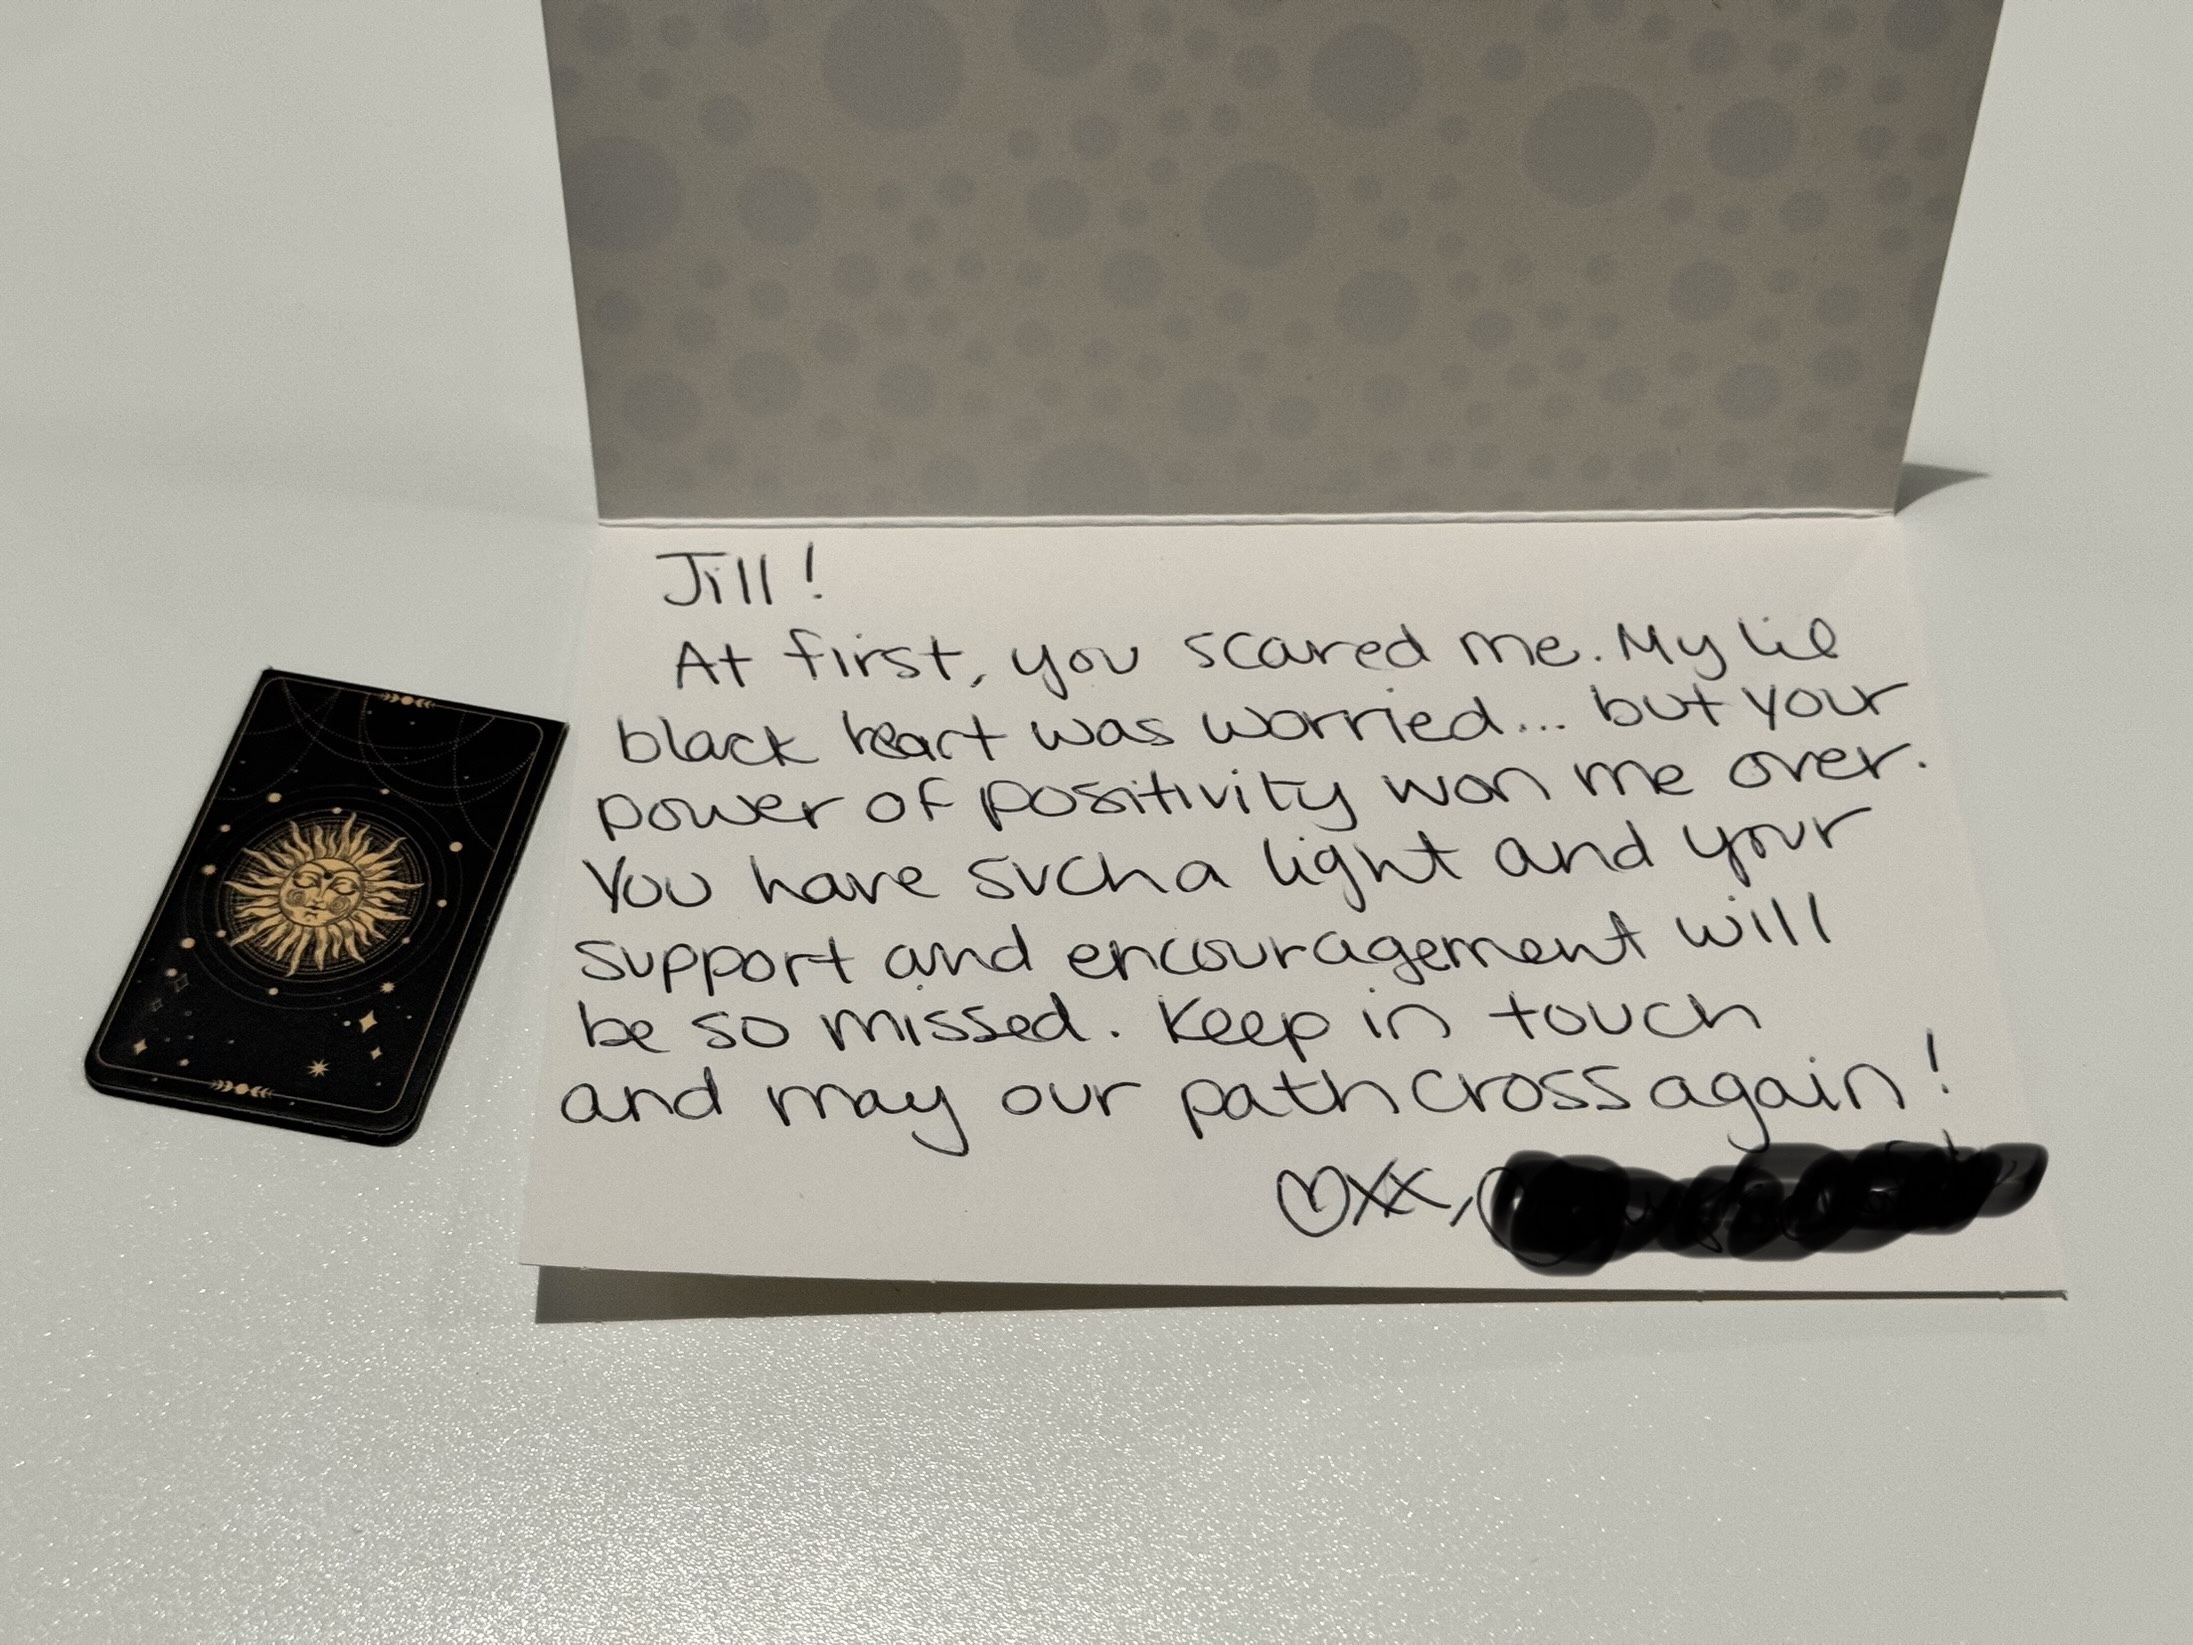 Jill!
At first, you scared me. My lil
black heart was worried... but your
power of positivity won me over.
You have such a light and your
support and encouragement will
be so missed. Keep in touch
and may our path cross again!
♡XX,